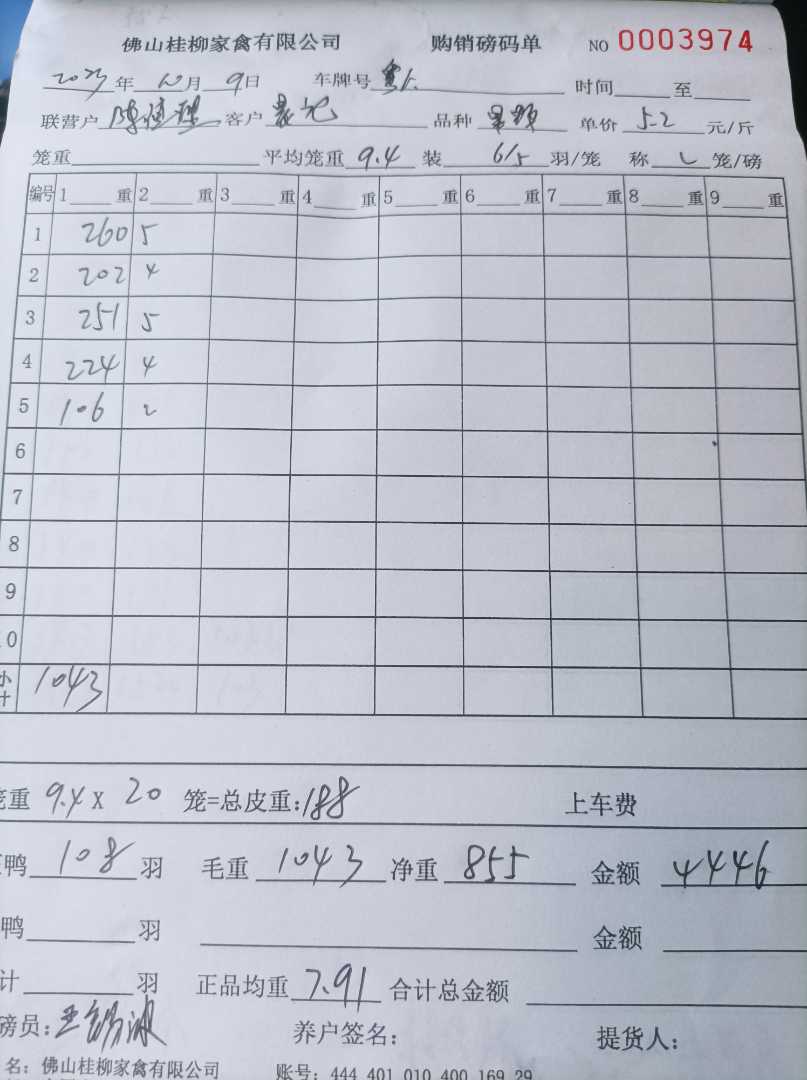 佛山桂柳家禽有限公司 购销磅码单 NO 0003974
2023年10月9日 车牌号 时间 至
联营户 客户 品种 单价 5.2 元/斤
笼重 平均笼重 9.4 装 6/5 羽/笼 称 笼/磅
编号 1 重 2 重 3 重 4 重 5 重 6 重 7 重 8 重 9 重
1 260 5
2 202 4
3 251 5
4 224 4
5 106 2
6
7
8
9
0
小计 1043
笼重 9.4 X 20 笼=总皮重: 188 上车费
鸭 108 羽 毛重 1043 净重 855 金额 4446
鸭 羽 金额
计 羽 正品均重 7.91 合计总金额
磅员: 养户签名: 提货人:
名: 佛山桂柳家禽有限公司 账号: 444 401 010 400 169 29